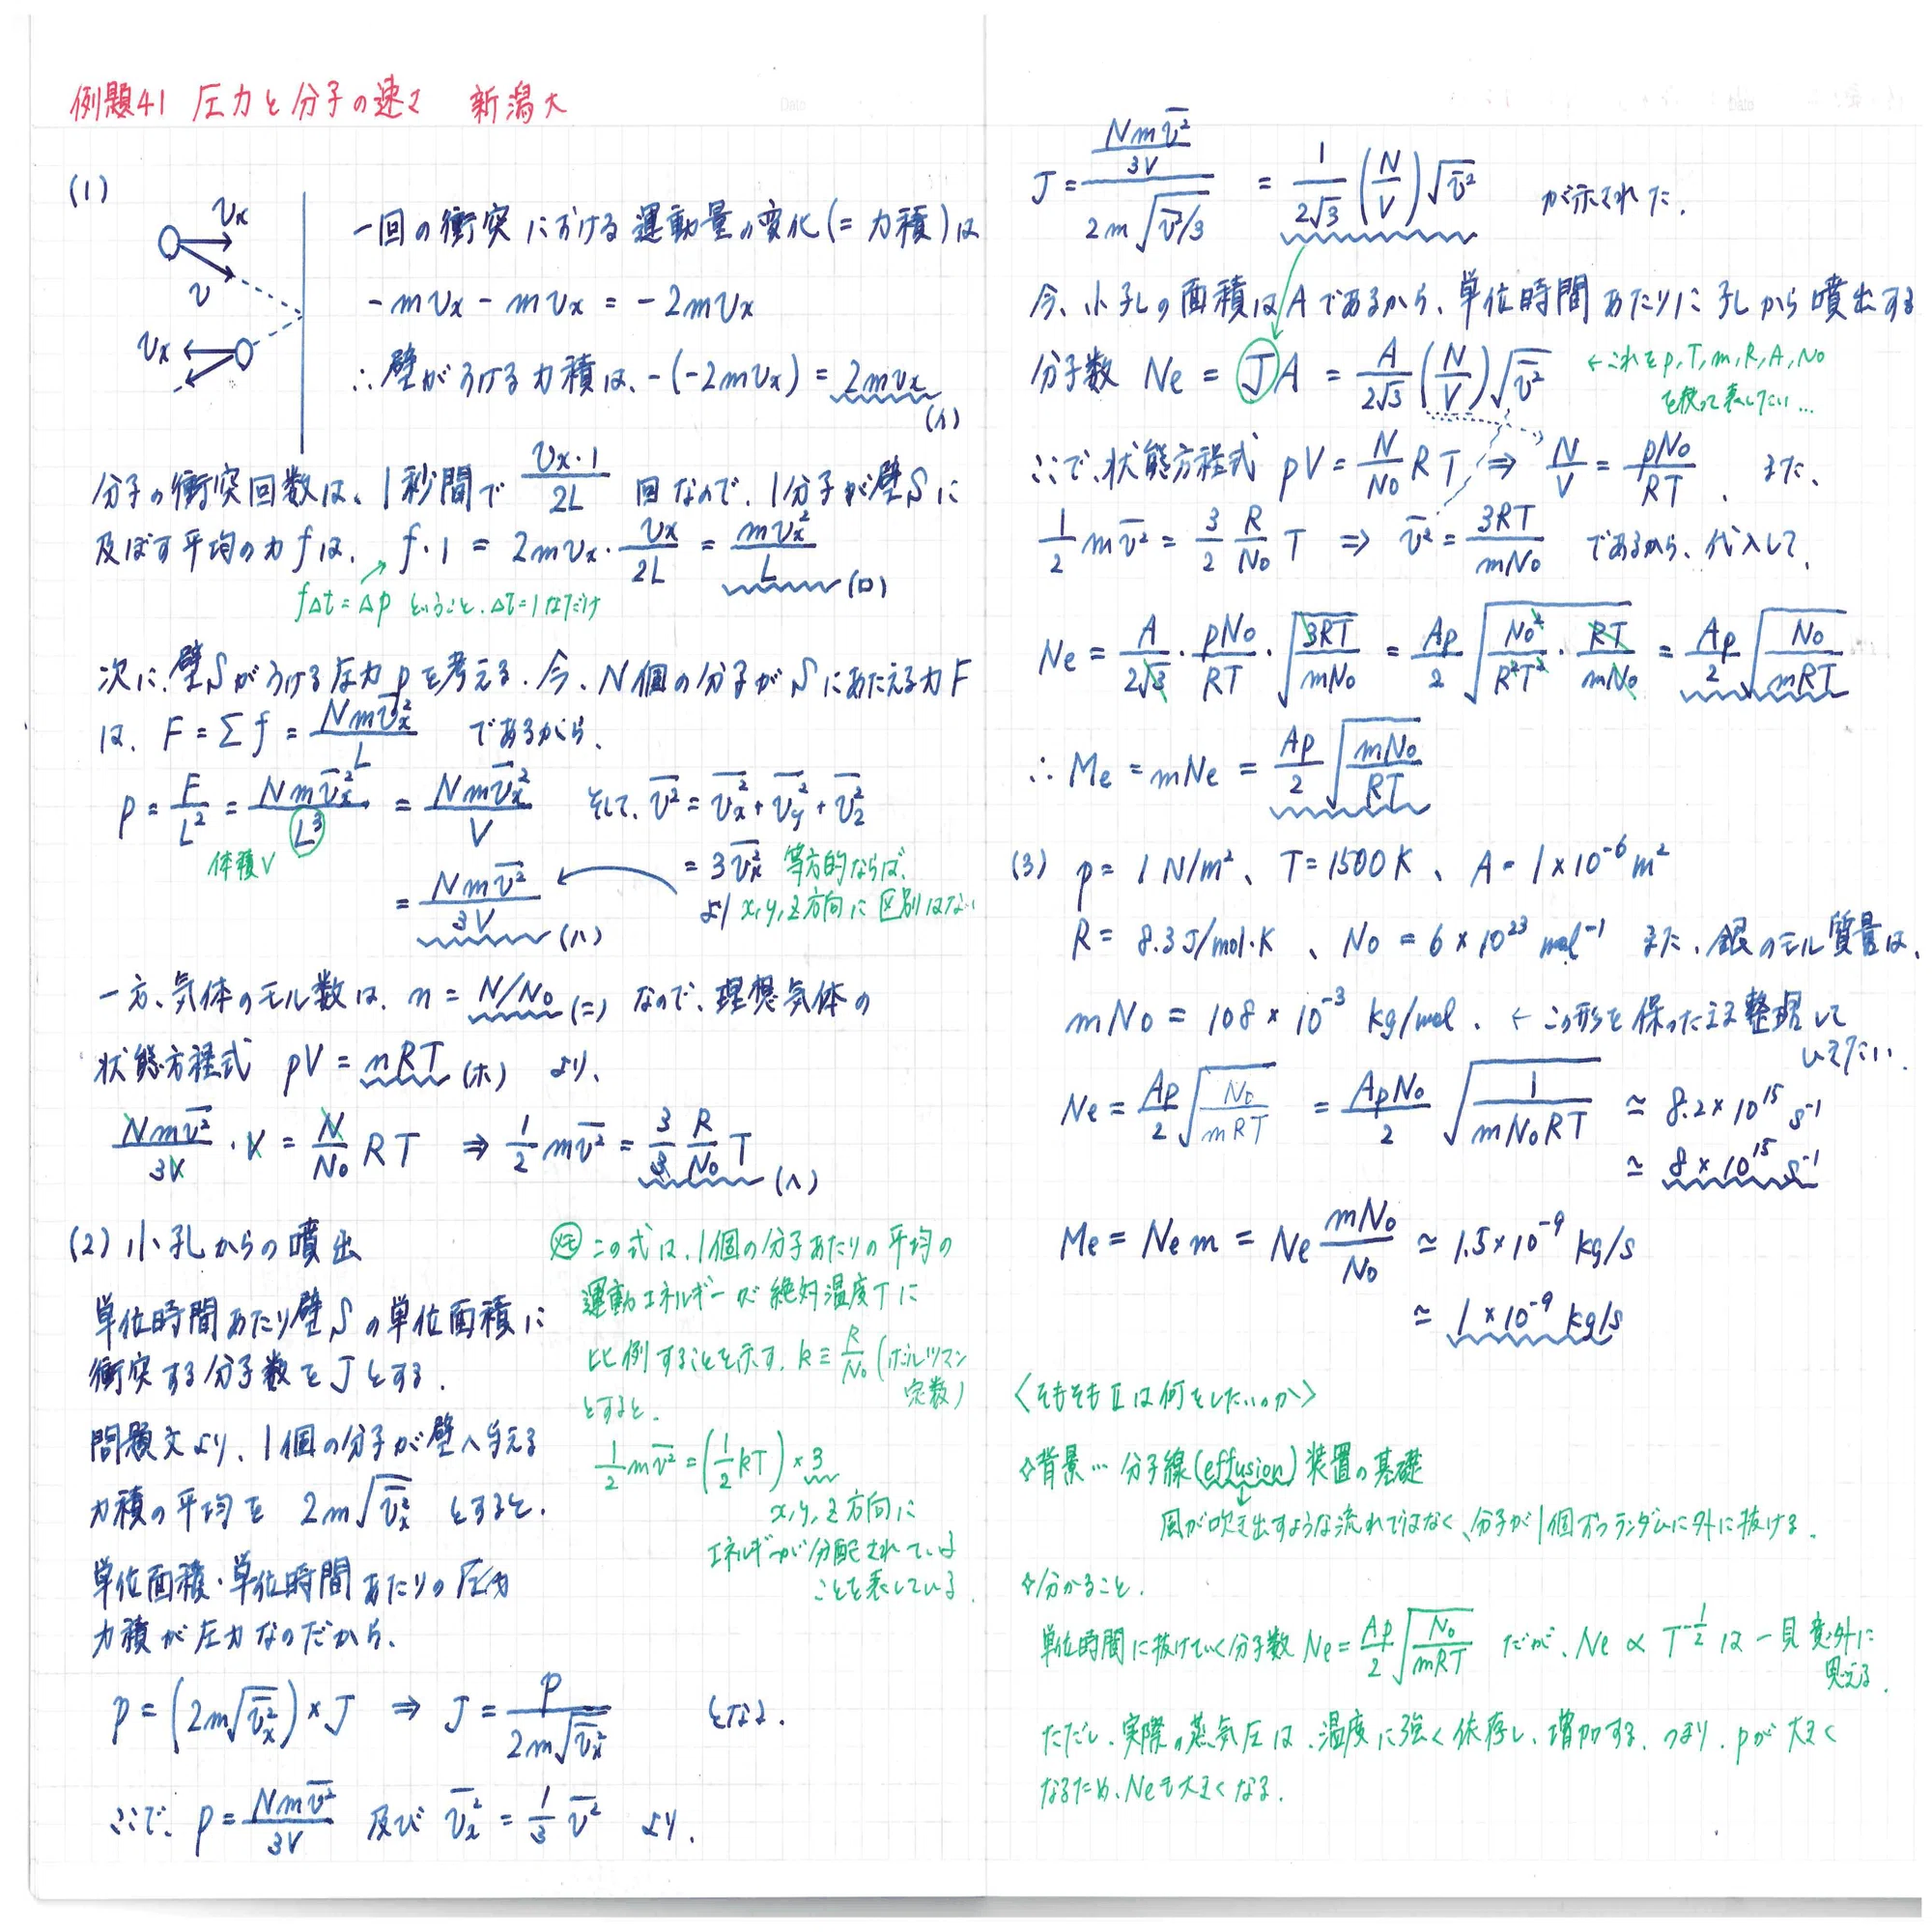 例題41 圧力と分子の速さ 新潟大
(1)
vx
v
vx
一回の衝突における運動量の変化(=力積)は
-mvx - mvx = -2mvx
∴壁がうける力積は、-(-2mvx) = 2mvx
(イ)
分子の衝突回数は、1秒間で vx・1/2L 回なので、1分子が壁Sに
及ぼす平均の力fは、 f・1 = 2mvx・vx/2L = mvx²/L (ロ)
fΔt = Δp ということ、Δt=1なだけ
次に、壁Sがうける圧力pを考える。今、N個の分子がSにあたえる力F
は、F = Σf = Nm\overline{vx²}/L であるから、
p = F/L² = Nm\overline{vx²}/L³ = Nm\overline{vx²}/V そして、\overline{v²} = \overline{vx²} + \overline{vy²} + \overline{vz²}
体積V
= 3\overline{vx²} 等方的ならば、
= Nm\overline{v²}/3V (ハ) より x,y,z方向に区別はない
一方、気体のモル数は、n = N/N0 (ニ) なので、理想気体の
状態方程式 pV = nRT (ホ) より、
Nm\overline{v²}/3V・V = N/N0 RT ⇒ 1/2 m\overline{v²} = 3/2 R/N0 T (ヘ)
(2) 小孔からの噴出
単位時間あたり壁Sの単位面積に
衝突する分子数をJとする.
問題文より、1個の分子が壁へ与える
力積の平均を 2m√\overline{vx²} とすると、
単位面積・単位時間あたりの圧力
力積が圧力なのだから、
p = (2m√\overline{vx²}) × J ⇒ J = p/2m√\overline{vx²} となる.
ここで、p = Nm\overline{v²}/3V 及び \overline{vx²} = 1/3 \overline{v²} より.
メモ この式は、1個の分子あたりの平均の
運動エネルギーが絶対温度Tに
比例することを示す. k ≡ R/N0 (ボルツマン
定数)
とすると、
1/2 m\overline{v²} = (1/2 kT) × 3
x,y,z方向に
エネルギーが分配されている
ことを表している.
J = (Nm\overline{v²}/3V)/(2m√\overline{v²}/3) = 1/2√3 (N/V) √\overline{v²} が示された.
今、小孔の面積はAであるから、単位時間あたりに孔から噴出する
分子数 Ne = JA = A/2√3 (N/V) √\overline{v²} ←これをp,T,m,R,A,N0
を使って表したい…
ここで、状態方程式 pV = N/N0 RT ⇒ N/V = pN0/RT 、また、
1/2 m\overline{v²} = 3/2 R/N0 T ⇒ \overline{v²} = 3RT/mN0 であるから、代入して、
Ne = A/2√3・pN0/RT・√3RT/mN0 = Ap/2 √N0²/R²T²・RT/mN0 = Ap/2 √N0/mRT
∴ Me = mNe = Ap/2 √mN0/RT
(3) p = 1 N/m²、T = 1500 K、A = 1×10⁻⁶ m²
R = 8.3 J/mol・K 、N0 = 6×10²³ mol⁻¹ また、銀のモル質量は、
mN0 = 108×10⁻³ kg/mol. ←この形を保ったまま整理して
いきたい.
Ne = Ap/2 √N0/mRT = ApN0/2 √1/mN0RT ≃ 8.2×10¹⁵ s⁻¹
≃ 8×10¹⁵ s⁻¹
Me = Ne m = Ne mN0/N0 ≃ 1.5×10⁻⁹ kg/s
≃ 1×10⁻⁹ kg/s
〈そもそもⅡは何をしたいのか〉
◇背景… 分子線(effusion)装置の基礎
風が吹き出すような流れではなく、分子が1個ずつランダムに外に抜ける.
◇分かること.
単位時間に抜けていく分子数 Ne = Ap/2 √N0/mRT だが、Ne ∝ T^{-1/2} は一見意外に
思える.
ただし、実際の蒸気圧は、温度に強く依存し、増加する. つまり、pが大きく
なるため、Neも大きくなる.